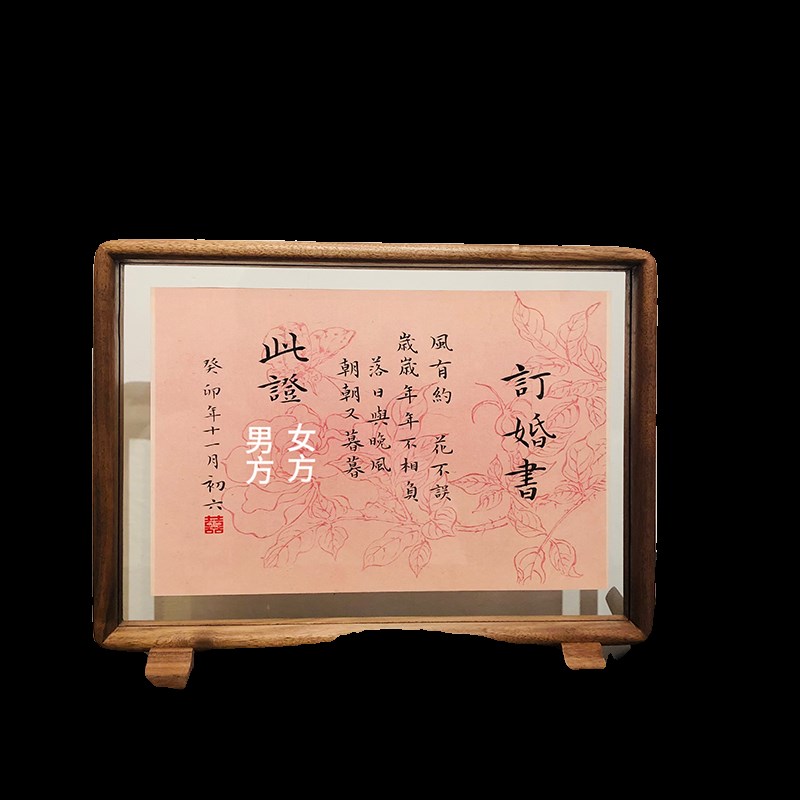 訂婚書
風有約 花不誤
歲歲年年不相負
落日與晚風
朝朝又暮暮
此證
女方
男方
癸卯年十一月初六
囍